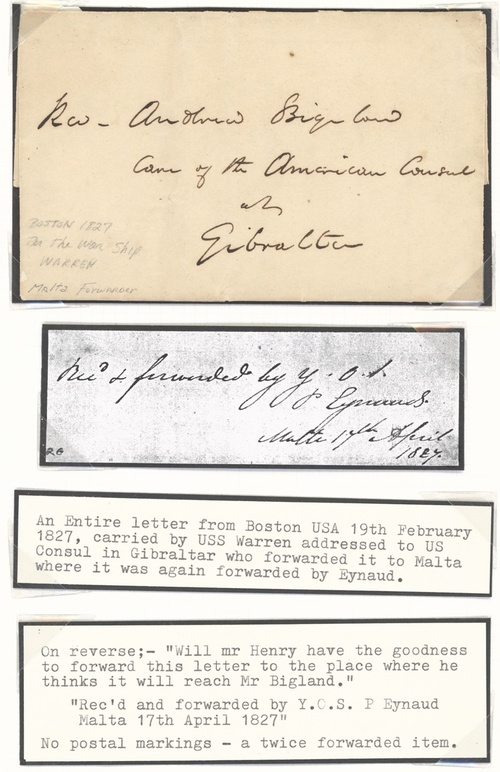 Rev- Andrew Bigelow
Care of the American Consul
at
Gibraltar
BOSTON 1827
on the War Ship
WARREN
Malta Forwarder
Rec'd & forwarded by Y. O. S.
P Eynaud.
Malta 17th April
1827.
An Entire letter from Boston USA 19th February
1827, carried by USS Warren addressed to US
Consul in Gibraltar who forwarded it to Malta
where it was again forwarded by Eynaud.
On reverse;- "Will mr Henry have the goodness
to forward this letter to the place where he
thinks it will reach Mr Bigland."
"Rec'd and forwarded by Y.O.S. P Eynaud
Malta 17th April 1827"
No postal markings - a twice forwarded item.